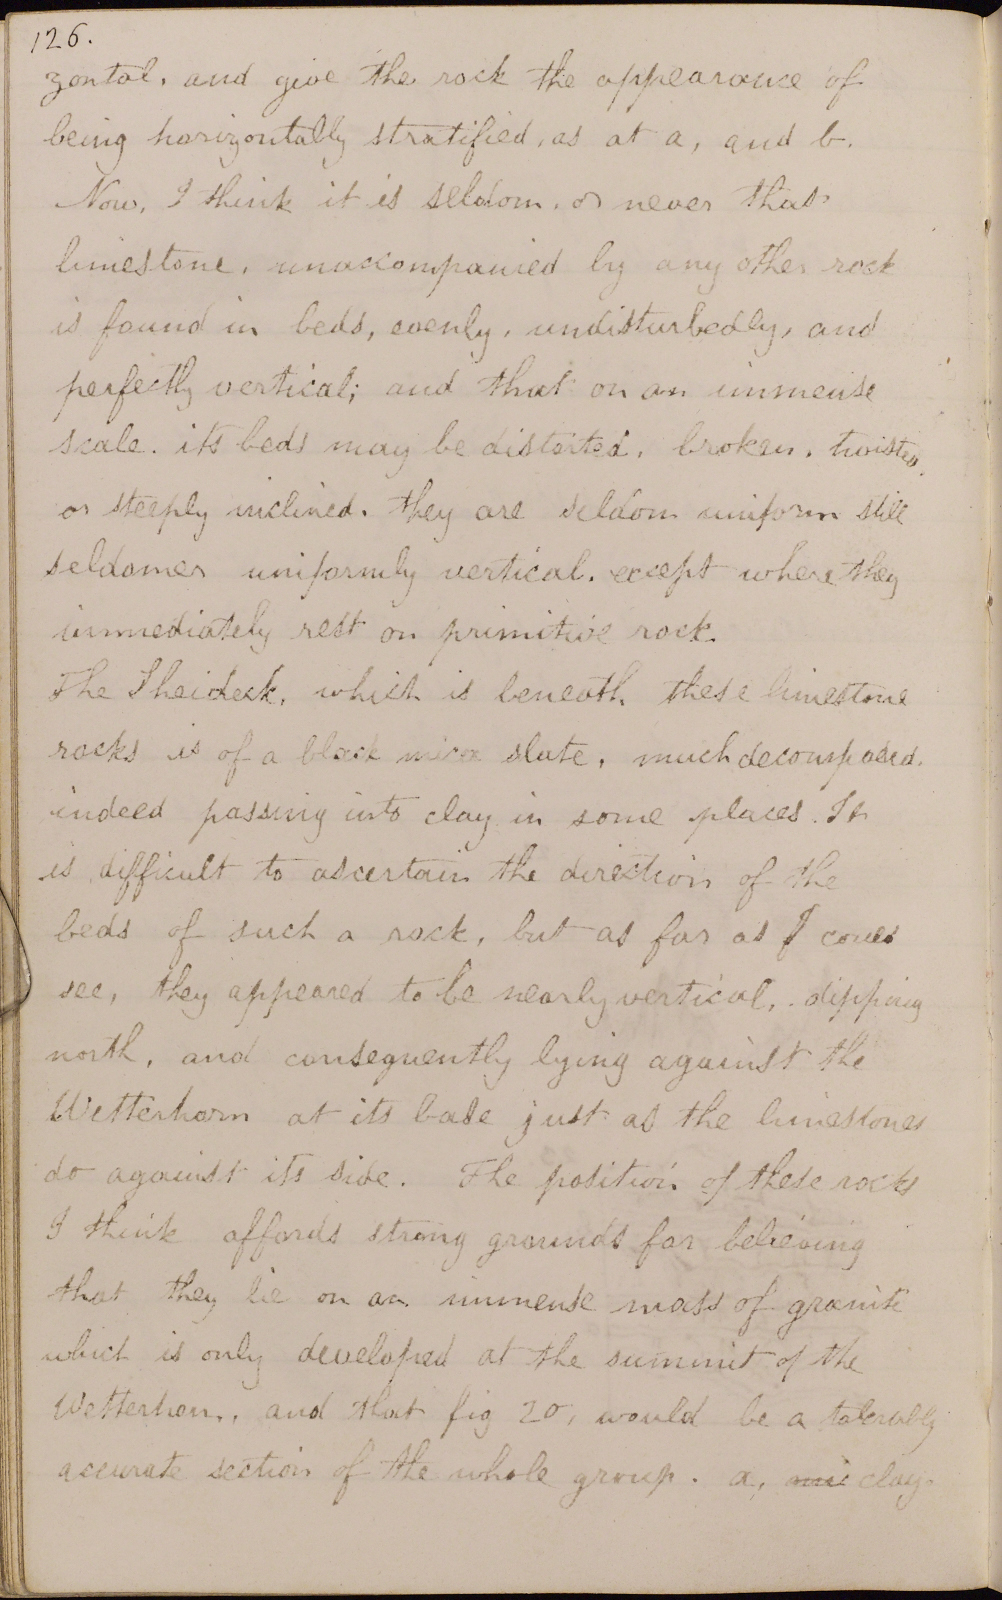 126.
zontal, and give the rock the appearance of
being horizontally stratified, as at a, and b.
Now, I think it is seldom, or never that
limestone, unaccompanied by any other rock
is found in beds, evenly, undisturbedly, and
perfectly vertical; and that on an immense
scale. its beds may be distorted, broken, twisted,
or steeply inclined. they are seldom uniform still
seldomer uniformly vertical, except where they
immediately rest on primitive rock.
The Sheideck, which is beneath these limestone
rocks is of a black mica slate, much decomposed.
indeed passing into clay in some places. It
is difficult to ascertain the direction of the
beds of such a rock, but as far as I could
see, they appeared to be nearly vertical, dipping
north, and consequently lying against the
Wetterhorn at its base just as the limestones
do against its side. The position of these rocks
I think affords strong grounds for believing
that they lie on an immense mass of granite
which is only developed at the summit of the
Wetterhorn, and that fig 20, would be a tolerably
accurate section of the whole group. a, mi clay.